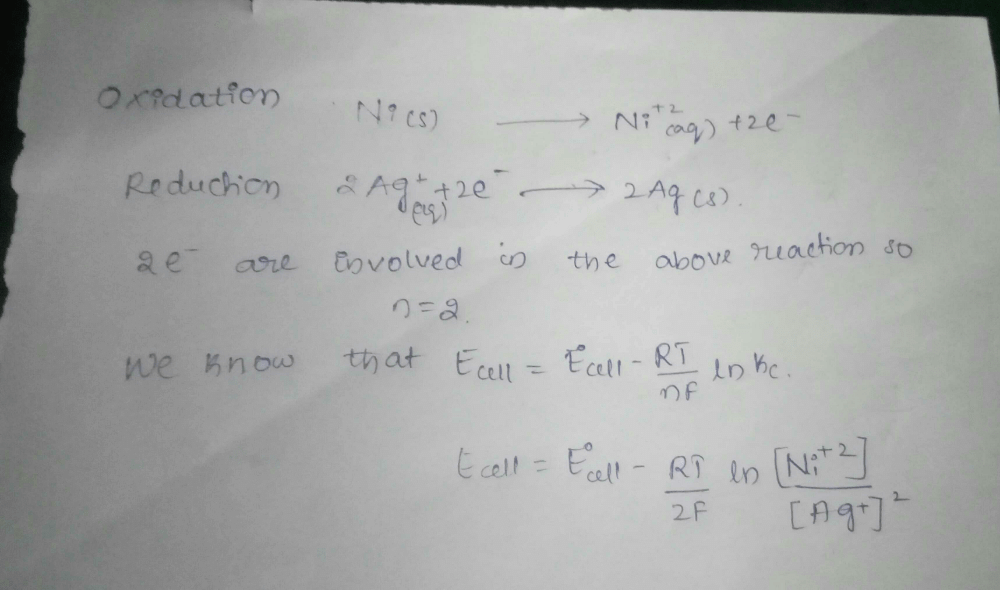 Oxidation Ni(s) ⟶ Ni⁺²(aq) + 2e⁻
Reduction 2Ag⁺(aq) + 2e⁻ ⟶ 2Ag(s).
2e⁻ are involved in the above reaction so
n=2.
We know that Ecell = E°cell - RT/nF ln Kc.
Ecell = E°cell - RT/2F ln [Ni⁺²]/[Ag⁺]²